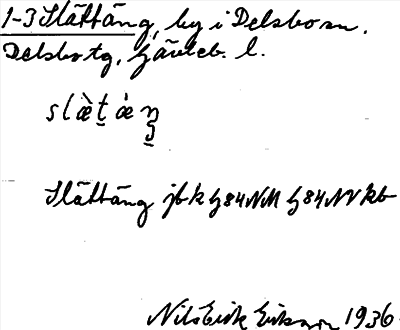 1-3 Slättäng, by i Delsbo sn.
Delsbo tg, Gävleb. l.
slæ̀t̠ ǽŋ̠
Slättäng jbk G84NM G84NV kb
Nils Erik Eriksson 1936